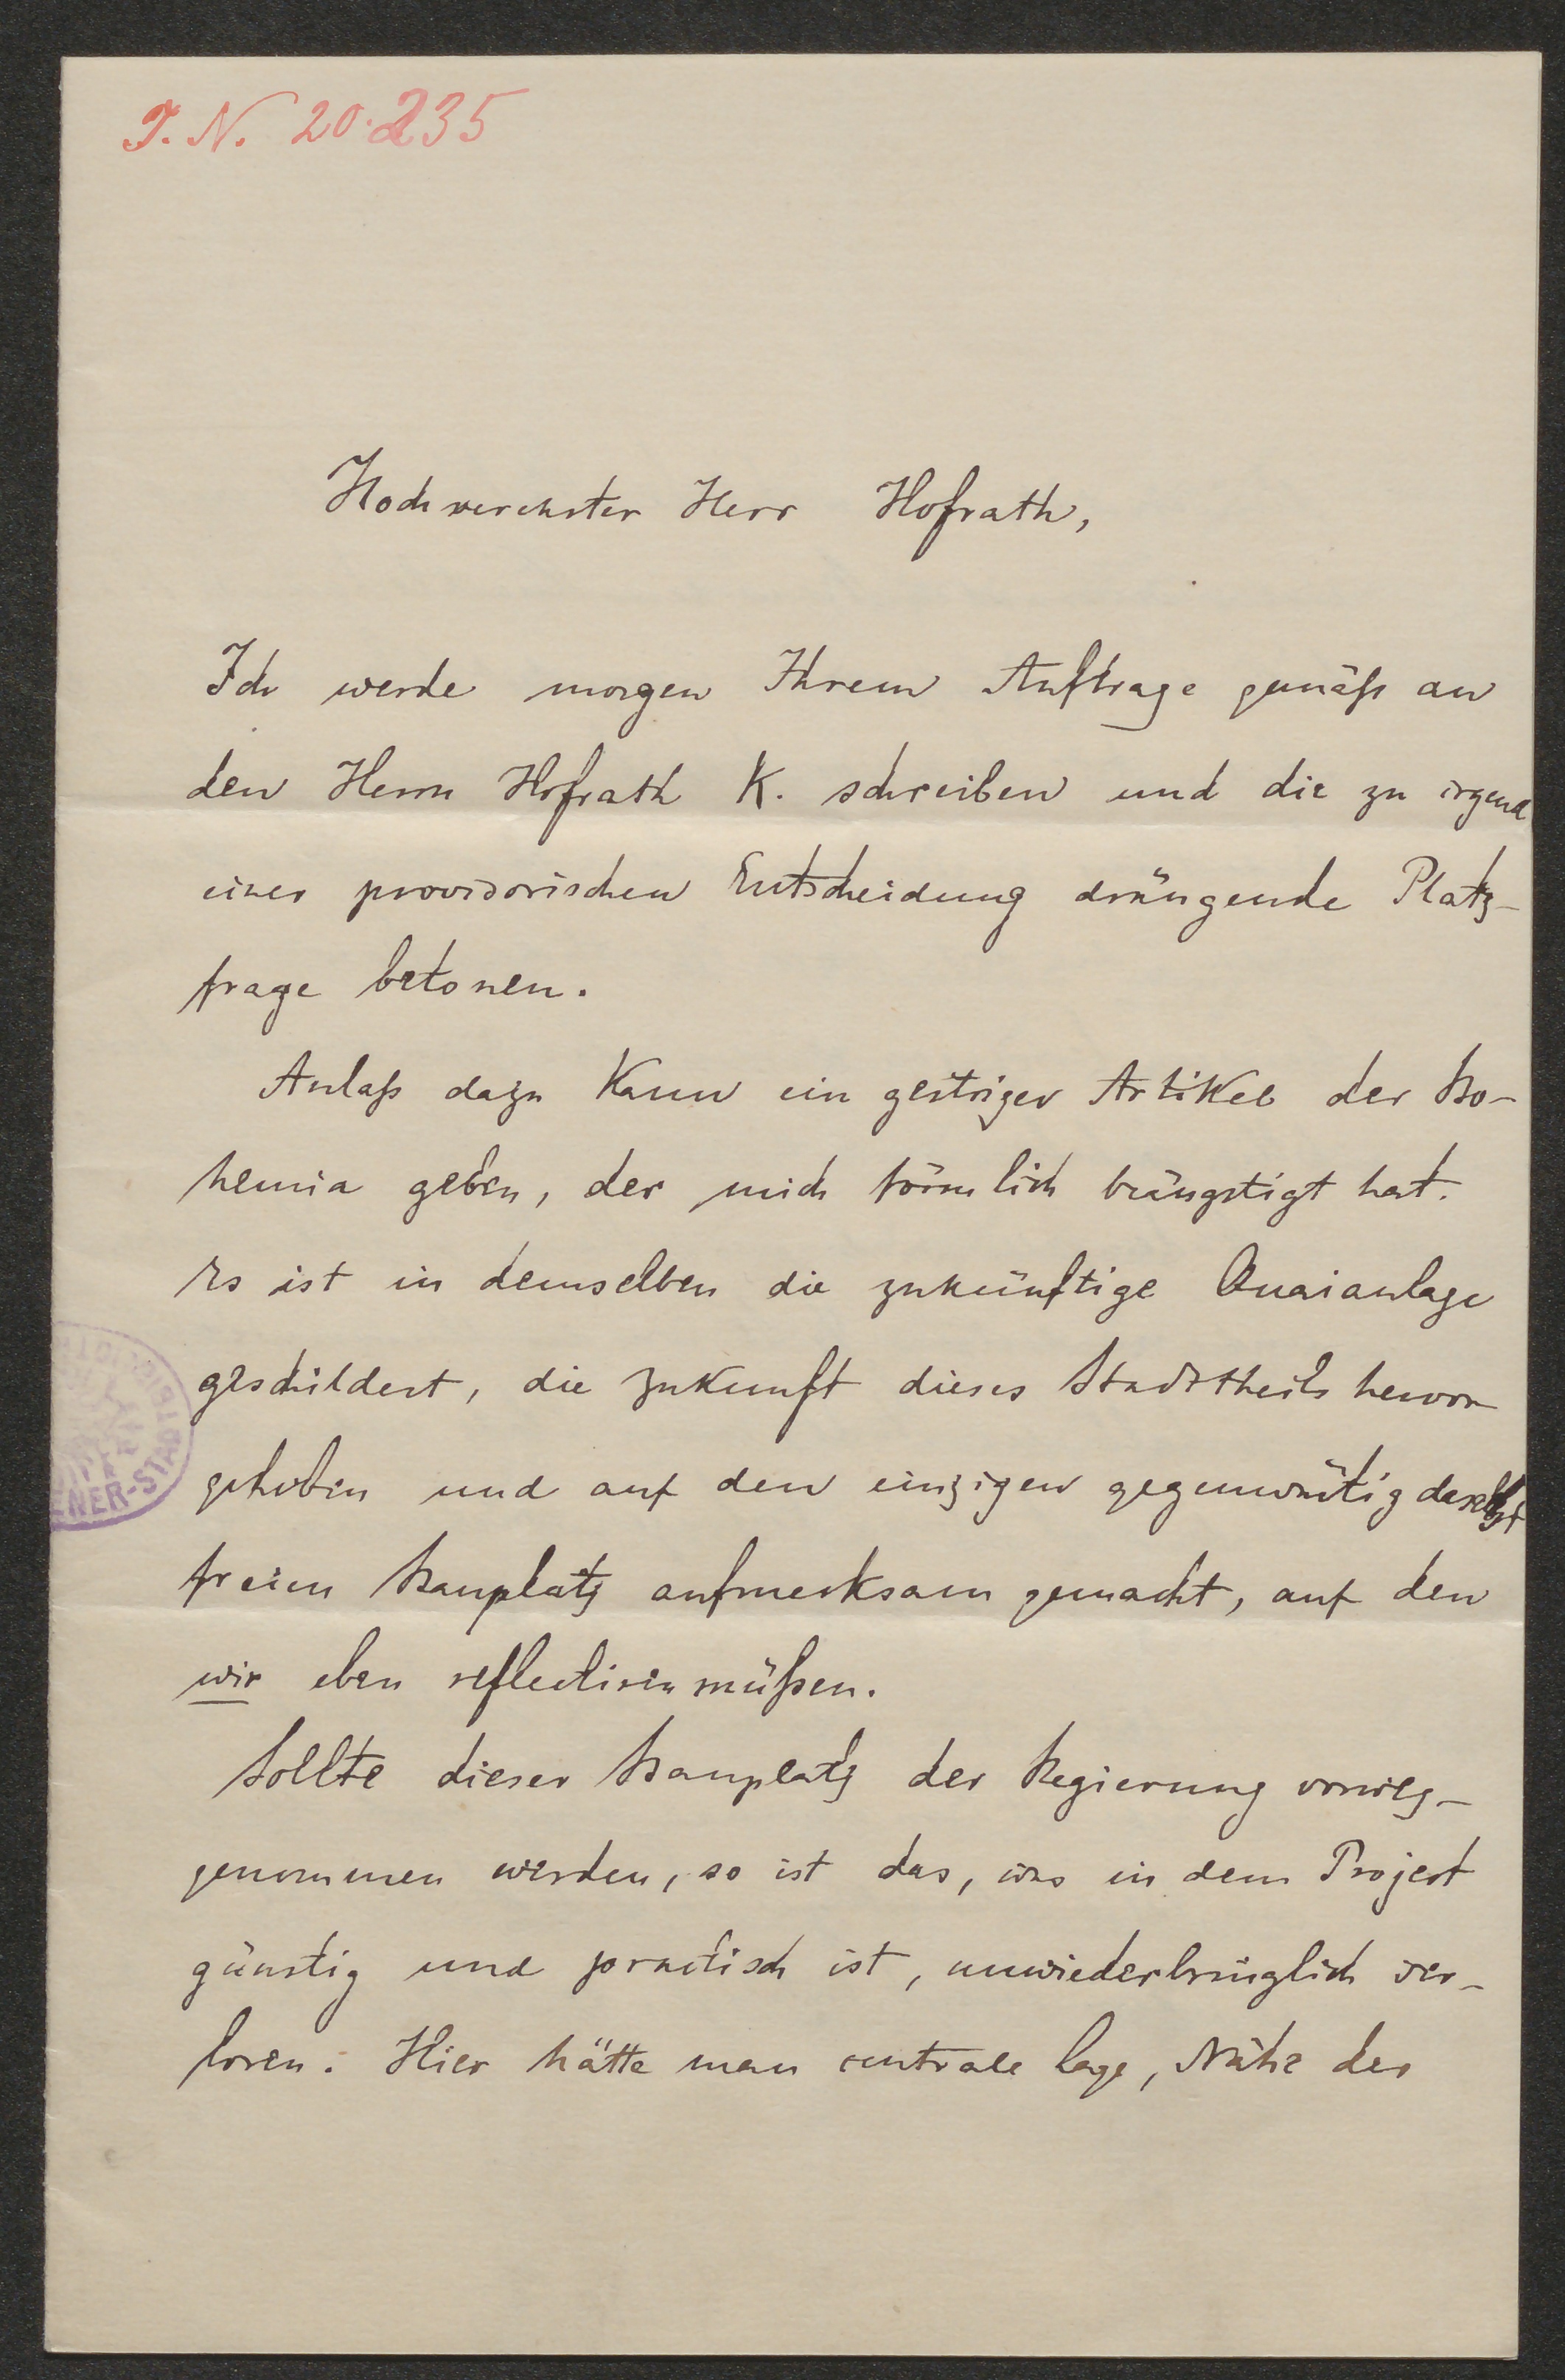 I. N. 20.235
Hochverehrter Herr Hofrath,
Ich werde morgen Ihrem Auftrage gemäß an
den Herrn Hofrath K. schreiben und die zu irgend
einer provisorischen Entscheidung drängende Platz-
frage betonen.
Anlaß dazu kann ein gestriger Artikel der Bo-
hemia geben, der mich förmlich beängstigt hat.
Es ist in demselben die zukünftige Quaianlage
geschildert, die Zukunft dieses Stadttheils hervor
gehoben und auf den einzigen gegenwärtig daselbst
freien Bauplatz aufmerksam gemacht, auf den
wir eben reflectiren müßen.
Sollte dieser Bauplatz der Regierung vorweg-
genommen werden, so ist das, was in dem Project
günstig und practisch ist, unwiederbringlich ver-
loren. Hier hätte man centrale Lage, Nähe der
ENER-STADT